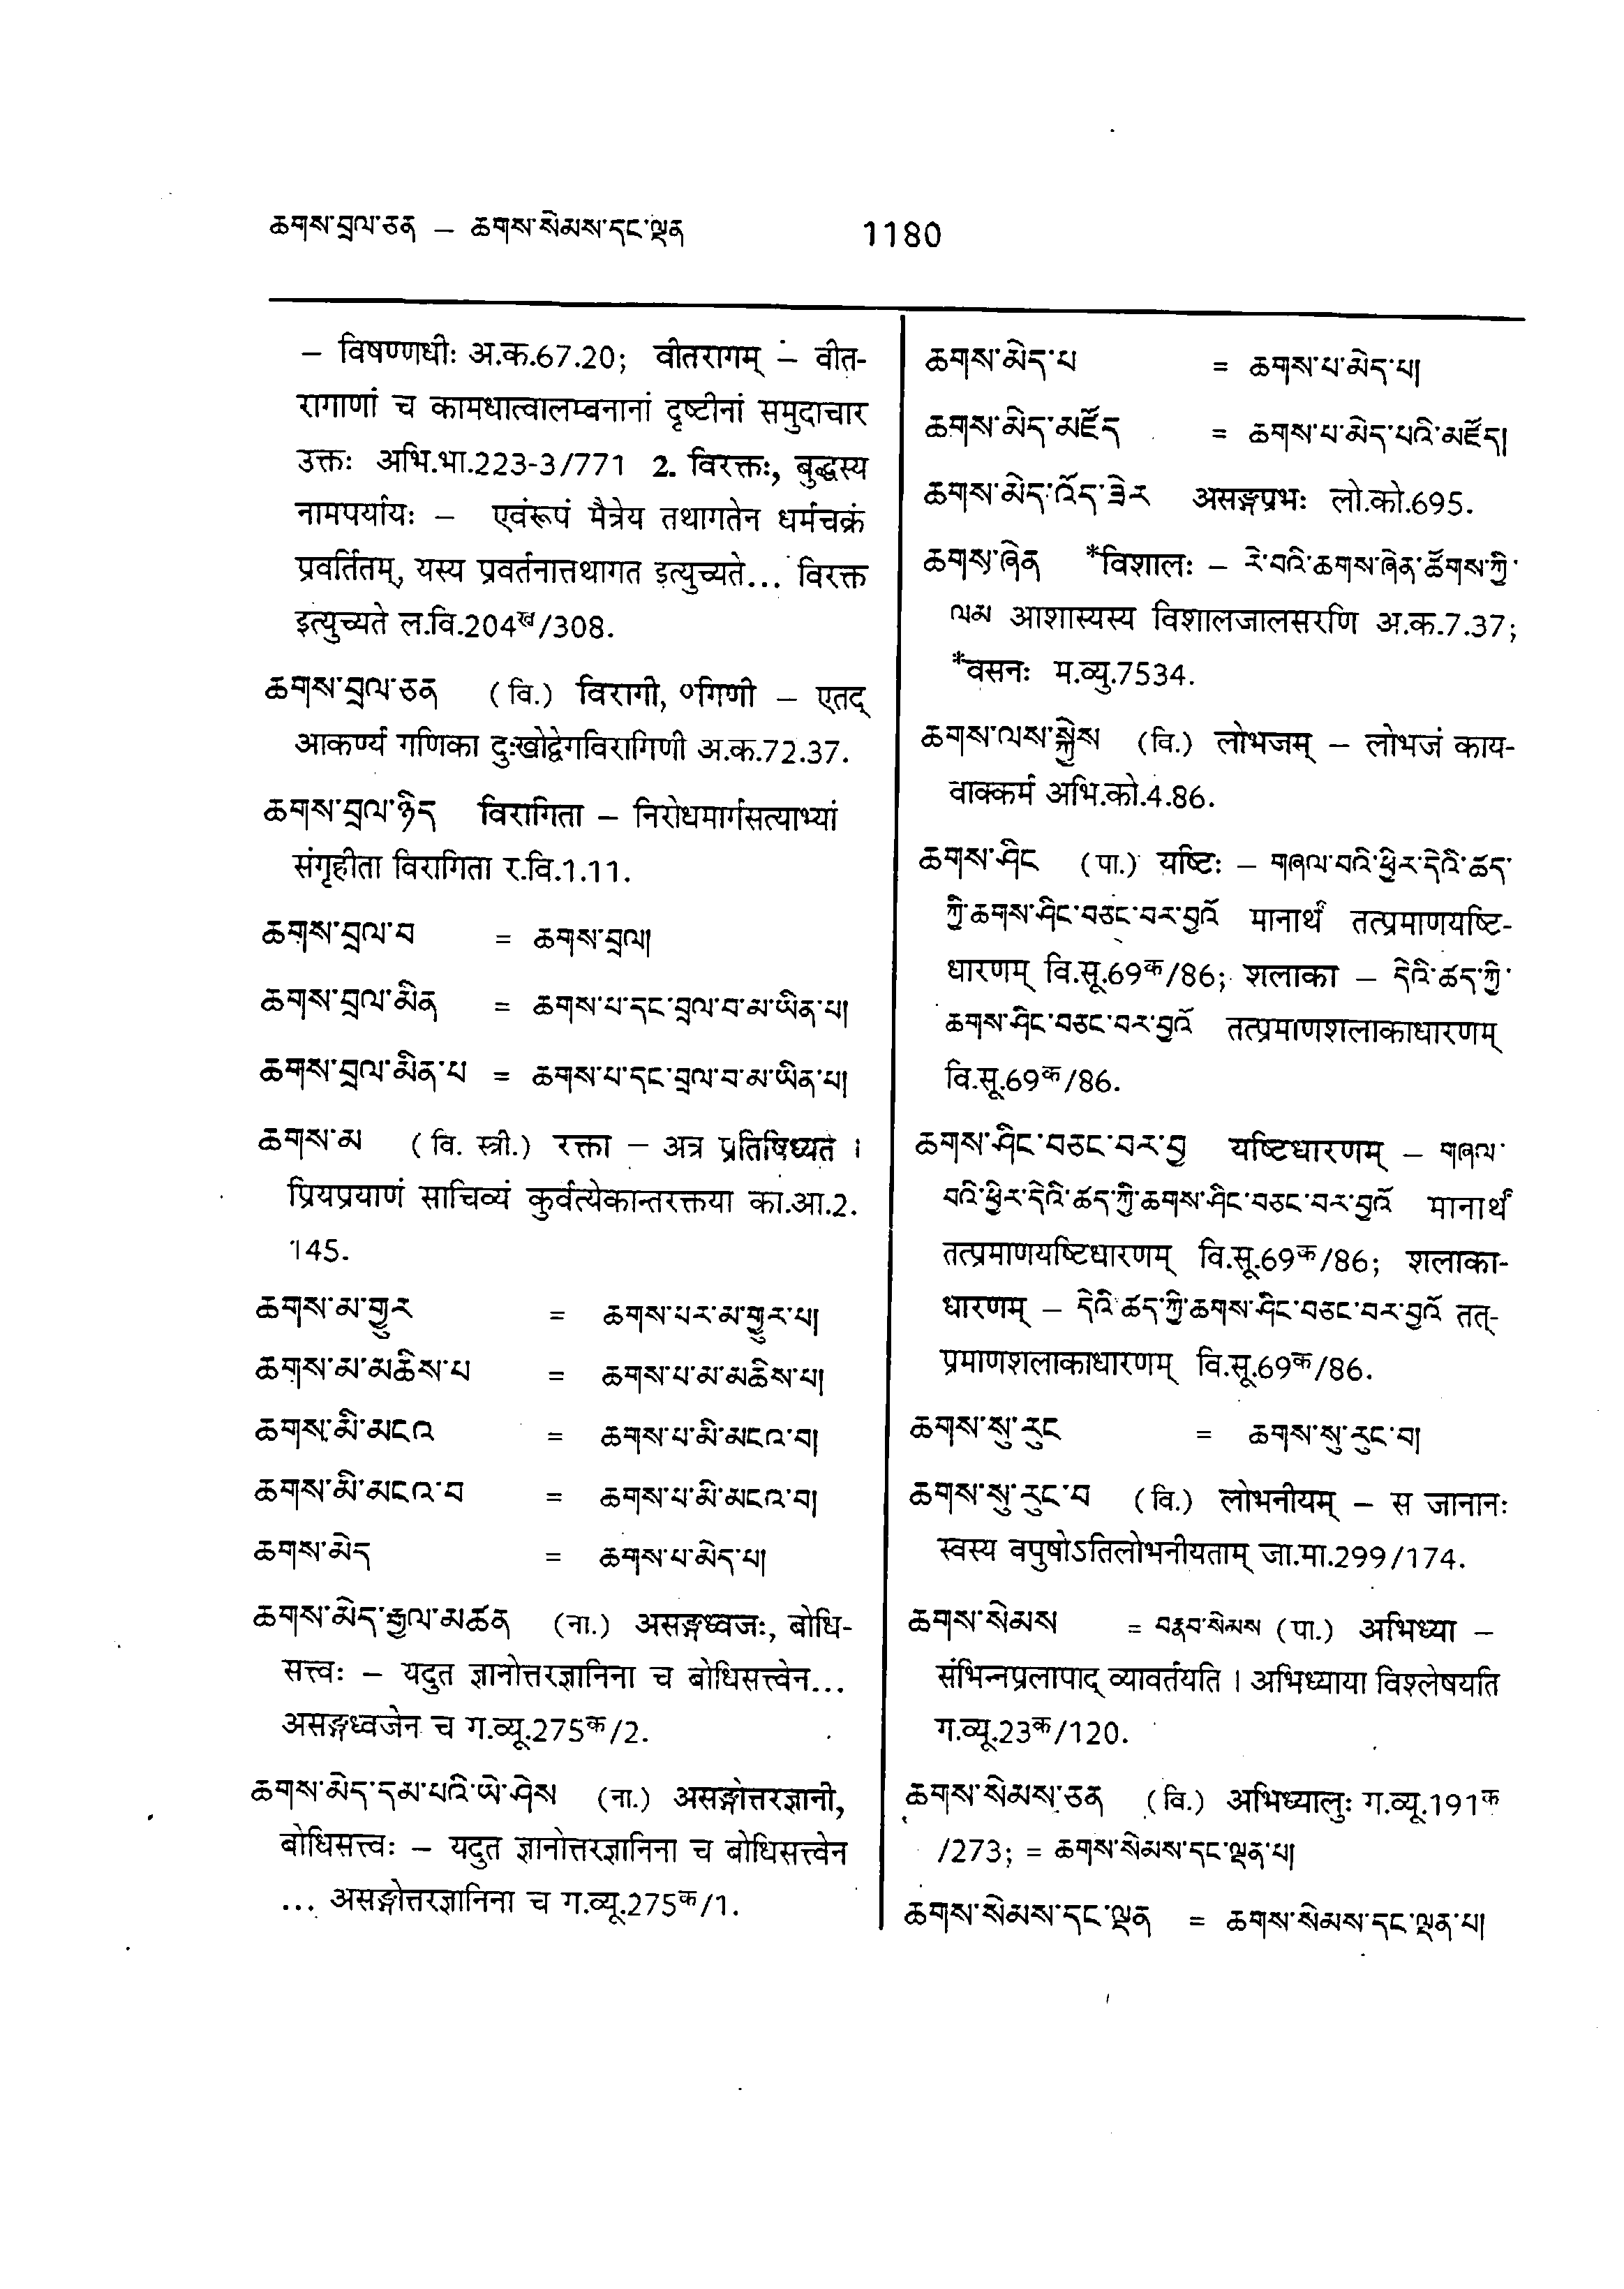 ཆགས་བྲལ་ཅན – ཆགས་སེམས་དང་ལྡན 1180
– विषण्णधीः अ.क.67.20; वीतरागम् – वीत-
रागाणां च कामधात्वालम्बनानां दृष्टीनां समुदाचार
उक्तः अभि.भा.223-3/771 2. विरक्तः, बुद्धस्य
नामपर्यायः – एवंरूपं मैत्रेय तथागतेन धर्मचक्रं
प्रवर्तितम्, यस्य प्रवर्तनात्तथागत इत्युच्यते... विरक्त
इत्युच्यते ल.वि.204ख/308.
ཆགས་བྲལ་ཅན (वि.) विरागी, ०गिणी – एतद्
आकर्ण्य गणिका दुःखोद्वेगविरागिणी अ.क.72.37.
ཆགས་བྲལ་ཉིད विरागिता – निरोधमार्गसत्याभ्यां
संगृहीता विरागिता र.वि.1.11.
ཆགས་བྲལ་བ = ཆགས་བྲལ།
ཆགས་བྲལ་མིན = ཆགས་པ་དང་བྲལ་བ་མ་ཡིན་པ།
ཆགས་བྲལ་མིན་པ = ཆགས་པ་དང་བྲལ་བ་མ་ཡིན་པ།
ཆགས་མ (वि. स्त्री.) रक्ता – अत्र प्रतिषिध्यते ।
प्रियप्रयाणं साचिव्यं कुर्वत्येकान्तरक्तया का.आ.2.
145.
ཆགས་མ་གྱུར = ཆགས་པར་མ་གྱུར་པ།
ཆགས་མ་མཆིས་པ = ཆགས་པ་མ་མཆིས་པ།
ཆགས་མི་མངའ = ཆགས་པ་མི་མངའ་བ།
ཆགས་མི་མངའ་བ = ཆགས་པ་མི་མངའ་བ།
ཆགས་མེད = ཆགས་པ་མེད་པ།
ཆགས་མེད་རྒྱལ་མཚན (ना.) असङ्गध्वजः, बोधि-
सत्त्वः – यदुत ज्ञानोत्तरज्ञानिना च बोधिसत्त्वेन...
असङ्गध्वजेन च ग.व्यू.275क/2.
ཆགས་མེད་དམ་པའི་ཡེ་ཤེས (ना.) असङ्गोत्तरज्ञानी,
बोधिसत्त्वः – यदुत ज्ञानोत्तरज्ञानिना च बोधिसत्त्वेन
... असङ्गोत्तरज्ञानिना च ग.व्यू.275क/1.
ཆགས་མེད་པ = ཆགས་པ་མེད་པ།
ཆགས་མེད་མཛོད = ཆགས་པ་མེད་པའི་མཛོད།
ཆགས་མེད་འོད་ཟེར असङ्गप्रभः लो.को.695.
ཆགས་ཞེན *विशालः – རེ་བའི་ཆགས་ཞེན་ཚོགས་ཀྱི་
ལམ आशास्यस्य विशालजालसरणि अ.क.7.37;
*वसनः म.व्यु.7534.
ཆགས་ལས་སྐྱེས (वि.) लोभजम् – लोभजं काय-
वाक्कर्म अभि.को.4.86.
ཆགས་ཤིང (पा.) यष्टिः – གཞལ་བའི་ཕྱིར་དེའི་ཚད་
ཀྱི་ཆགས་ཤིང་བཅང་བར་བྱའོ मानार्थं तत्प्रमाणयष्टि-
धारणम् वि.सू.69क/86; शलाका – དེའི་ཚད་ཀྱི་
ཆགས་ཤིང་བཅང་བར་བྱའོ तत्प्रमाणशलाकाधारणम्
वि.सू.69क/86.
ཆགས་ཤིང་བཅང་བར་བྱ यष्टिधारणम् – གཞལ་
བའི་ཕྱིར་དེའི་ཚད་ཀྱི་ཆགས་ཤིང་བཅང་བར་བྱའོ मानार्थं
तत्प्रमाणयष्टिधारणम् वि.सू.69क/86; शलाका-
धारणम् – དེའི་ཚད་ཀྱི་ཆགས་ཤིང་བཅང་བར་བྱའོ तत्-
प्रमाणशलाकाधारणम् वि.सू.69क/86.
ཆགས་སུ་རུང = ཆགས་སུ་རུང་བ།
ཆགས་སུ་རུང་བ (वि.) लोभनीयम् – स जानानः
स्वस्य वपुषोऽतिलोभनीयताम् जा.मा.299/174.
ཆགས་སེམས = བརྣབ་སེམས (पा.) अभिध्या –
संभिन्नप्रलापाद् व्यावर्तयति । अभिध्याया विश्लेषयति
ग.व्यू.23क/120.
ཆགས་སེམས་ཅན (वि.) अभिध्यालुः ग.व्यू.191क
/273; = ཆགས་སེམས་དང་ལྡན་པ།
ཆགས་སེམས་དང་ལྡན = ཆགས་སེམས་དང་ལྡན་པ།